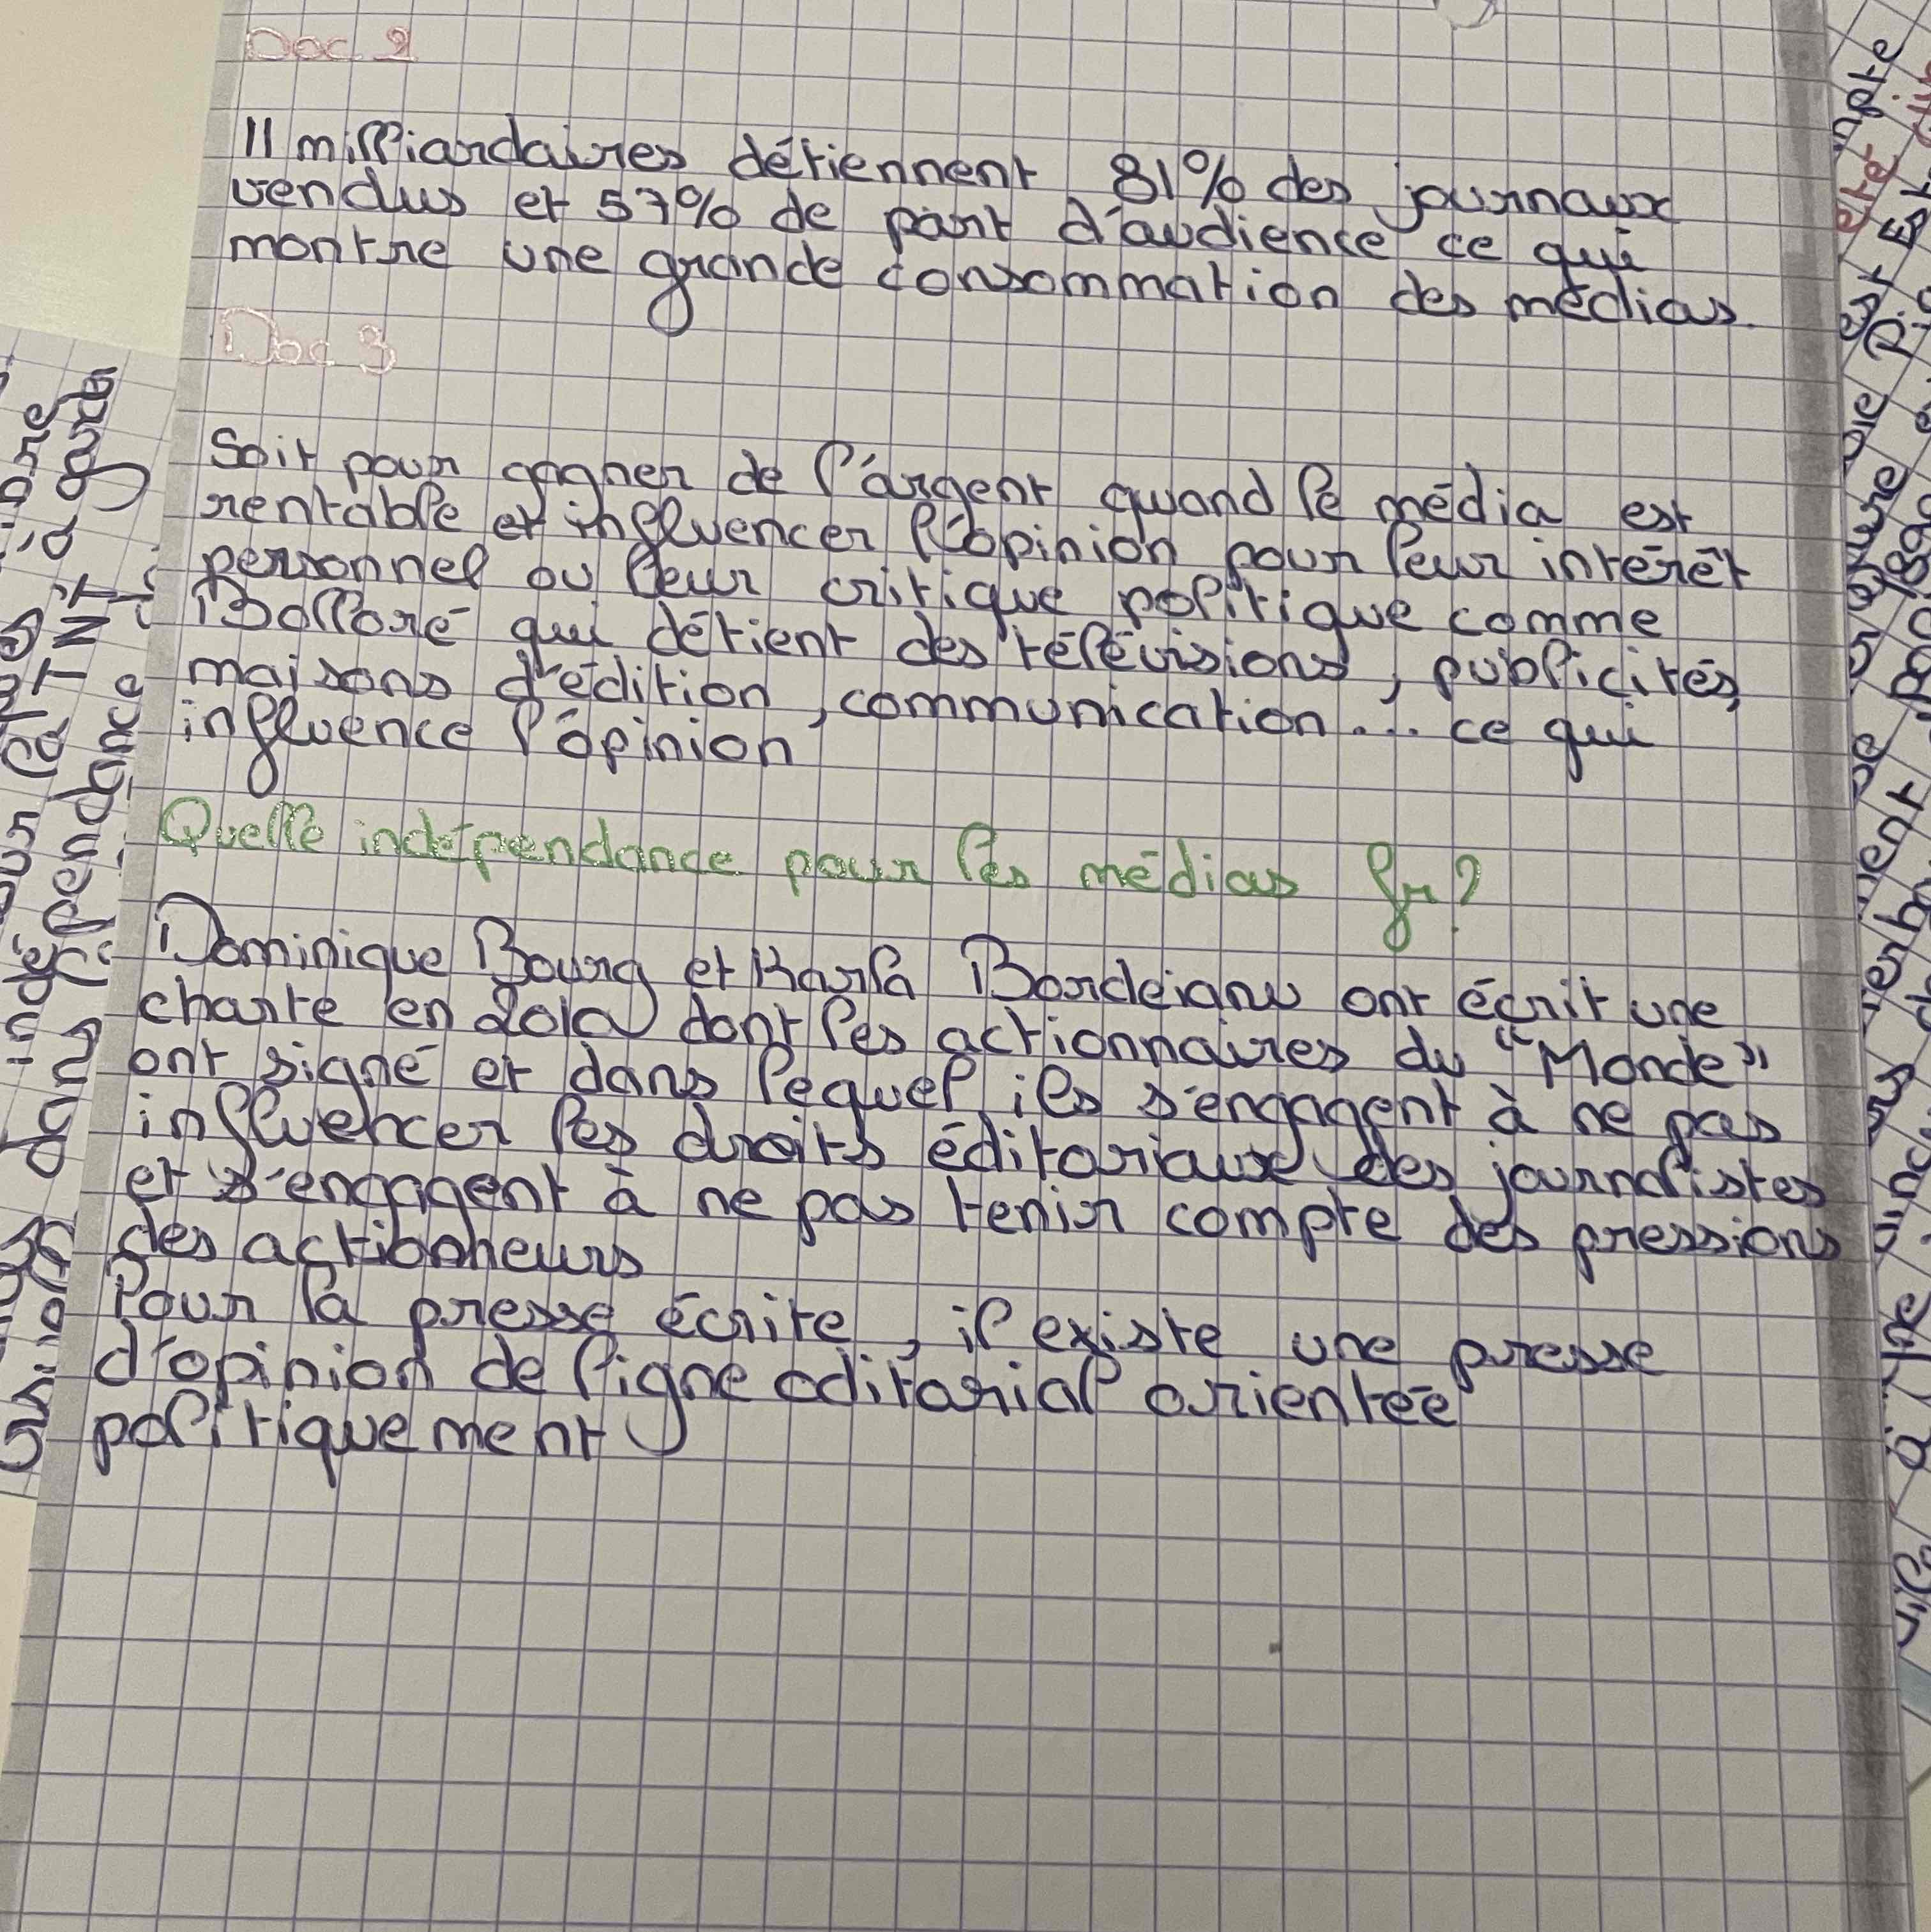 Doc 2
11 milliardaires détiennent 81% des journaux
vendus et 57% de part d'audience ce qui
montre une grande consommation des médias.
Doc 3
Soit pour gagner de l'argent quand le média est
rentable et influencer l'opinion pour leur intérêt
personnel ou leur critique politique comme
Bolloré qui détient des télévisions, publicités,
maisons d'édition, communication... ce qui
influence l'opinion
Quelle indépendance pour les médias fr?
Dominique Bourg et Karla ont écrit une
charte en dont les actionnaires du "Monde"
ont signé et dans lequel ils s'engagent à ne pas
influencer les droits éditoriaux des journalistes
et s'engagent à ne pas tenir compte des pressions
des actionneurs
Pour la presse écrite, il existe une presse
d'opinion de ligne editorial orientée
politiquement